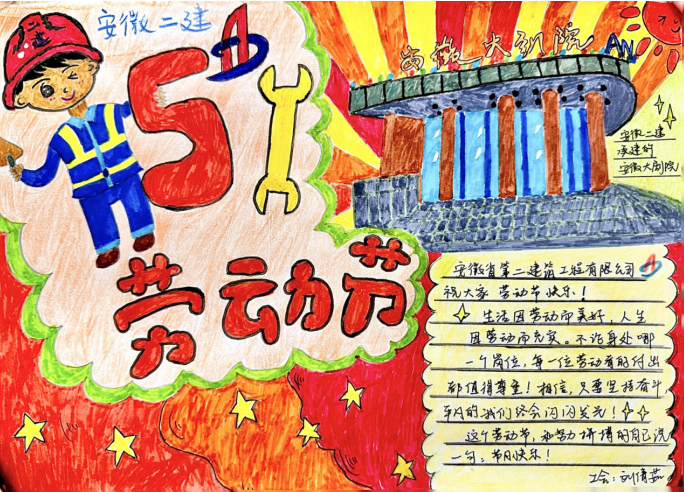 安徽二建
51
劳动节
安徽大剧院
安徽二建
承建的
安徽大剧院
安徽省第二建筑工程有限公司
祝大家劳动节快乐！
生活因劳动而美好，人生
因劳动而充实。不论身处哪
一个岗位，每一位劳动者的付出
都值得尊重！相信，只要坚持奋斗
平凡的我们终会闪闪发光！
这个劳动节，和努力拼搏的自己说
一句，节日快乐！
工会：刘倩茹